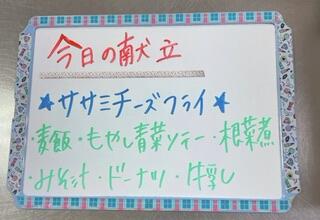 今日の献立
★ササミチーズフライ★
麦飯・もやし青菜ソテー・根菜煮
・みそ汁・ドーナツ・牛乳